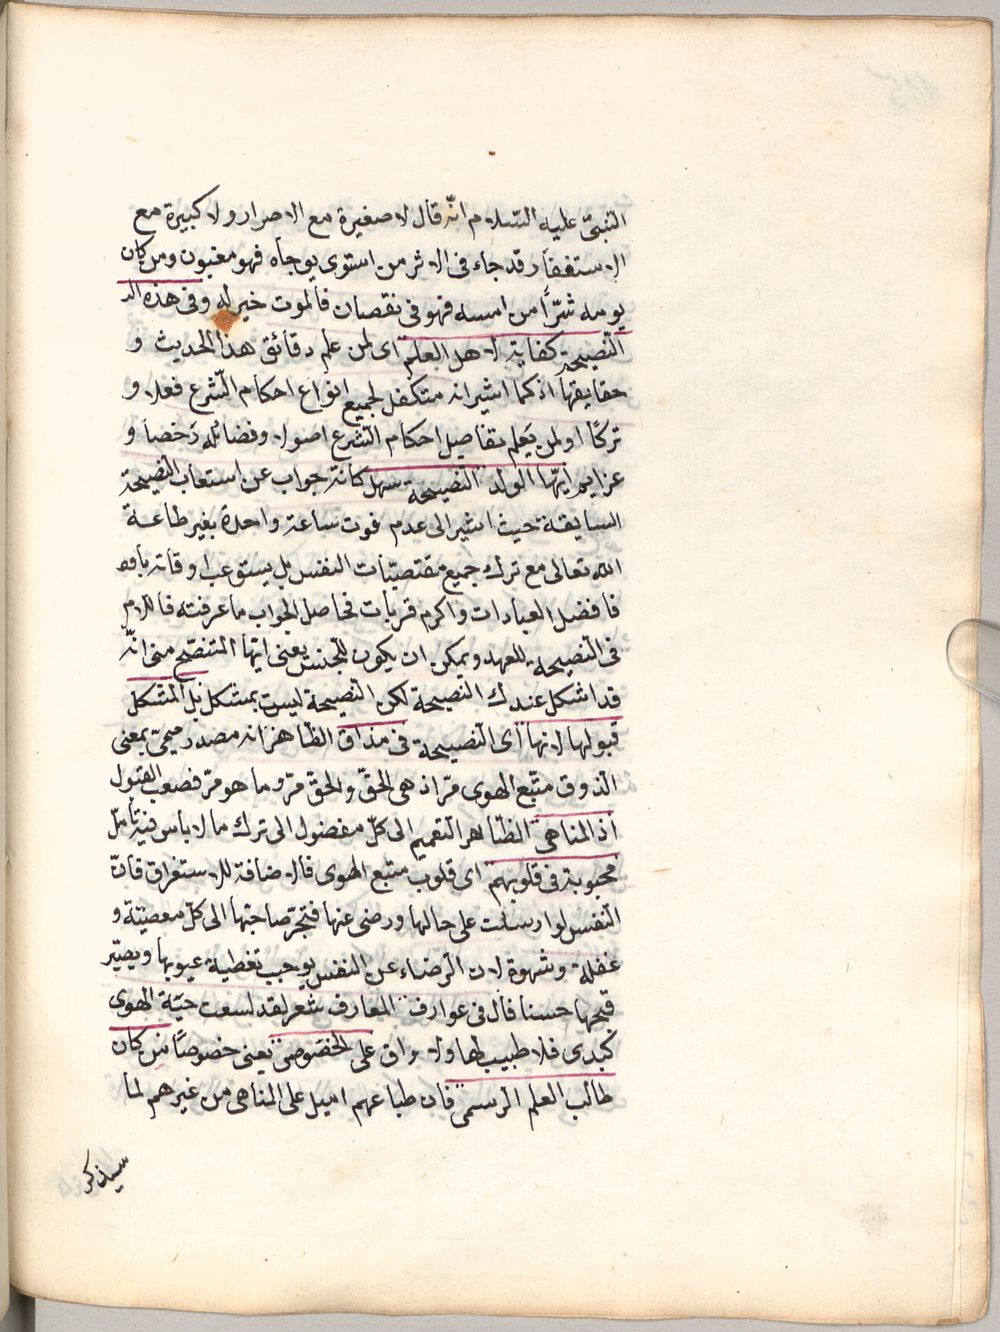 النبىّ عليه السّلام انّه قال لا صغيرة مع الاصرار ولا كبيرة مع
الاستغفار وقد جاء فى الاثر من استوى يوماه فهو مغبون ومن كان
يومه شرّاً من امسه فهو فى نقصان فالموت خير له وفى هذه الـ
النّصيحة كفاية لاهل العلم اى لمن علم دقائق هذا الحديث و
حقايقها اذ كما اشير انه متكفل لجميع انواع احكام الشّرع فعلا و
تركاً او لمن يَعلم تفاصيل احكام الشّرع اصولا وفضائله رخصا و
عزايم ايّها الولد النصيحة سهل كانّه جواب عن استعاب النصيحة
السابقة حيث اشير الى عدم فوت ساعة واحدة بغير طاعة
الله تعالى مع ترك جميع مقتضيات النفس بل يستوعب اوقاته
فافضل العبادات واكرم قربات فحاصل الجواب ما عرفته فاللام
فى النّصيحة للعهد ويمكن ان يكون للجنس يعنى ايّها المتنصّح منى انّه
قد اشكل عندك النصيحة لكن النّصيحة ليست بمشكل بل المشكل
قبولها لانها اى النّصيحة فى مذاق الظّاهر انه مصدر ميمىّ بمعنى
الذوق متّبع الهوى مرّ اذ هى الحقّ والحقّ مرّ وما هو مرّ فصعب القبول
اذ المناهى الظّاهر التعميم الى كلّ مفضول الى ترك ما لا باس فيه تأمّل
محبوبة فى قلوبهم اى قلوب متّبع الهوى فالاضافة للاستغراق فانّ
النّفس لو ارسلت على حالها ورضى عنها فتجرّ صاحبها الى كلّ معصيّة و
غفلة وشهوة لان الرّضاء عن النفس يوجب تغطية عيوبها ويصيّر
قبحها حسنا قال فى عوارف المعارف شعر لقد لسعت حيّة الهوى
كبدى فلا طبيب لها ولا راق على الخصوص يعنى خصوصاً من كان
طالب العلم الرسمى فان طباعهم اميل على المناهى من غيرهم لما
سيذكر